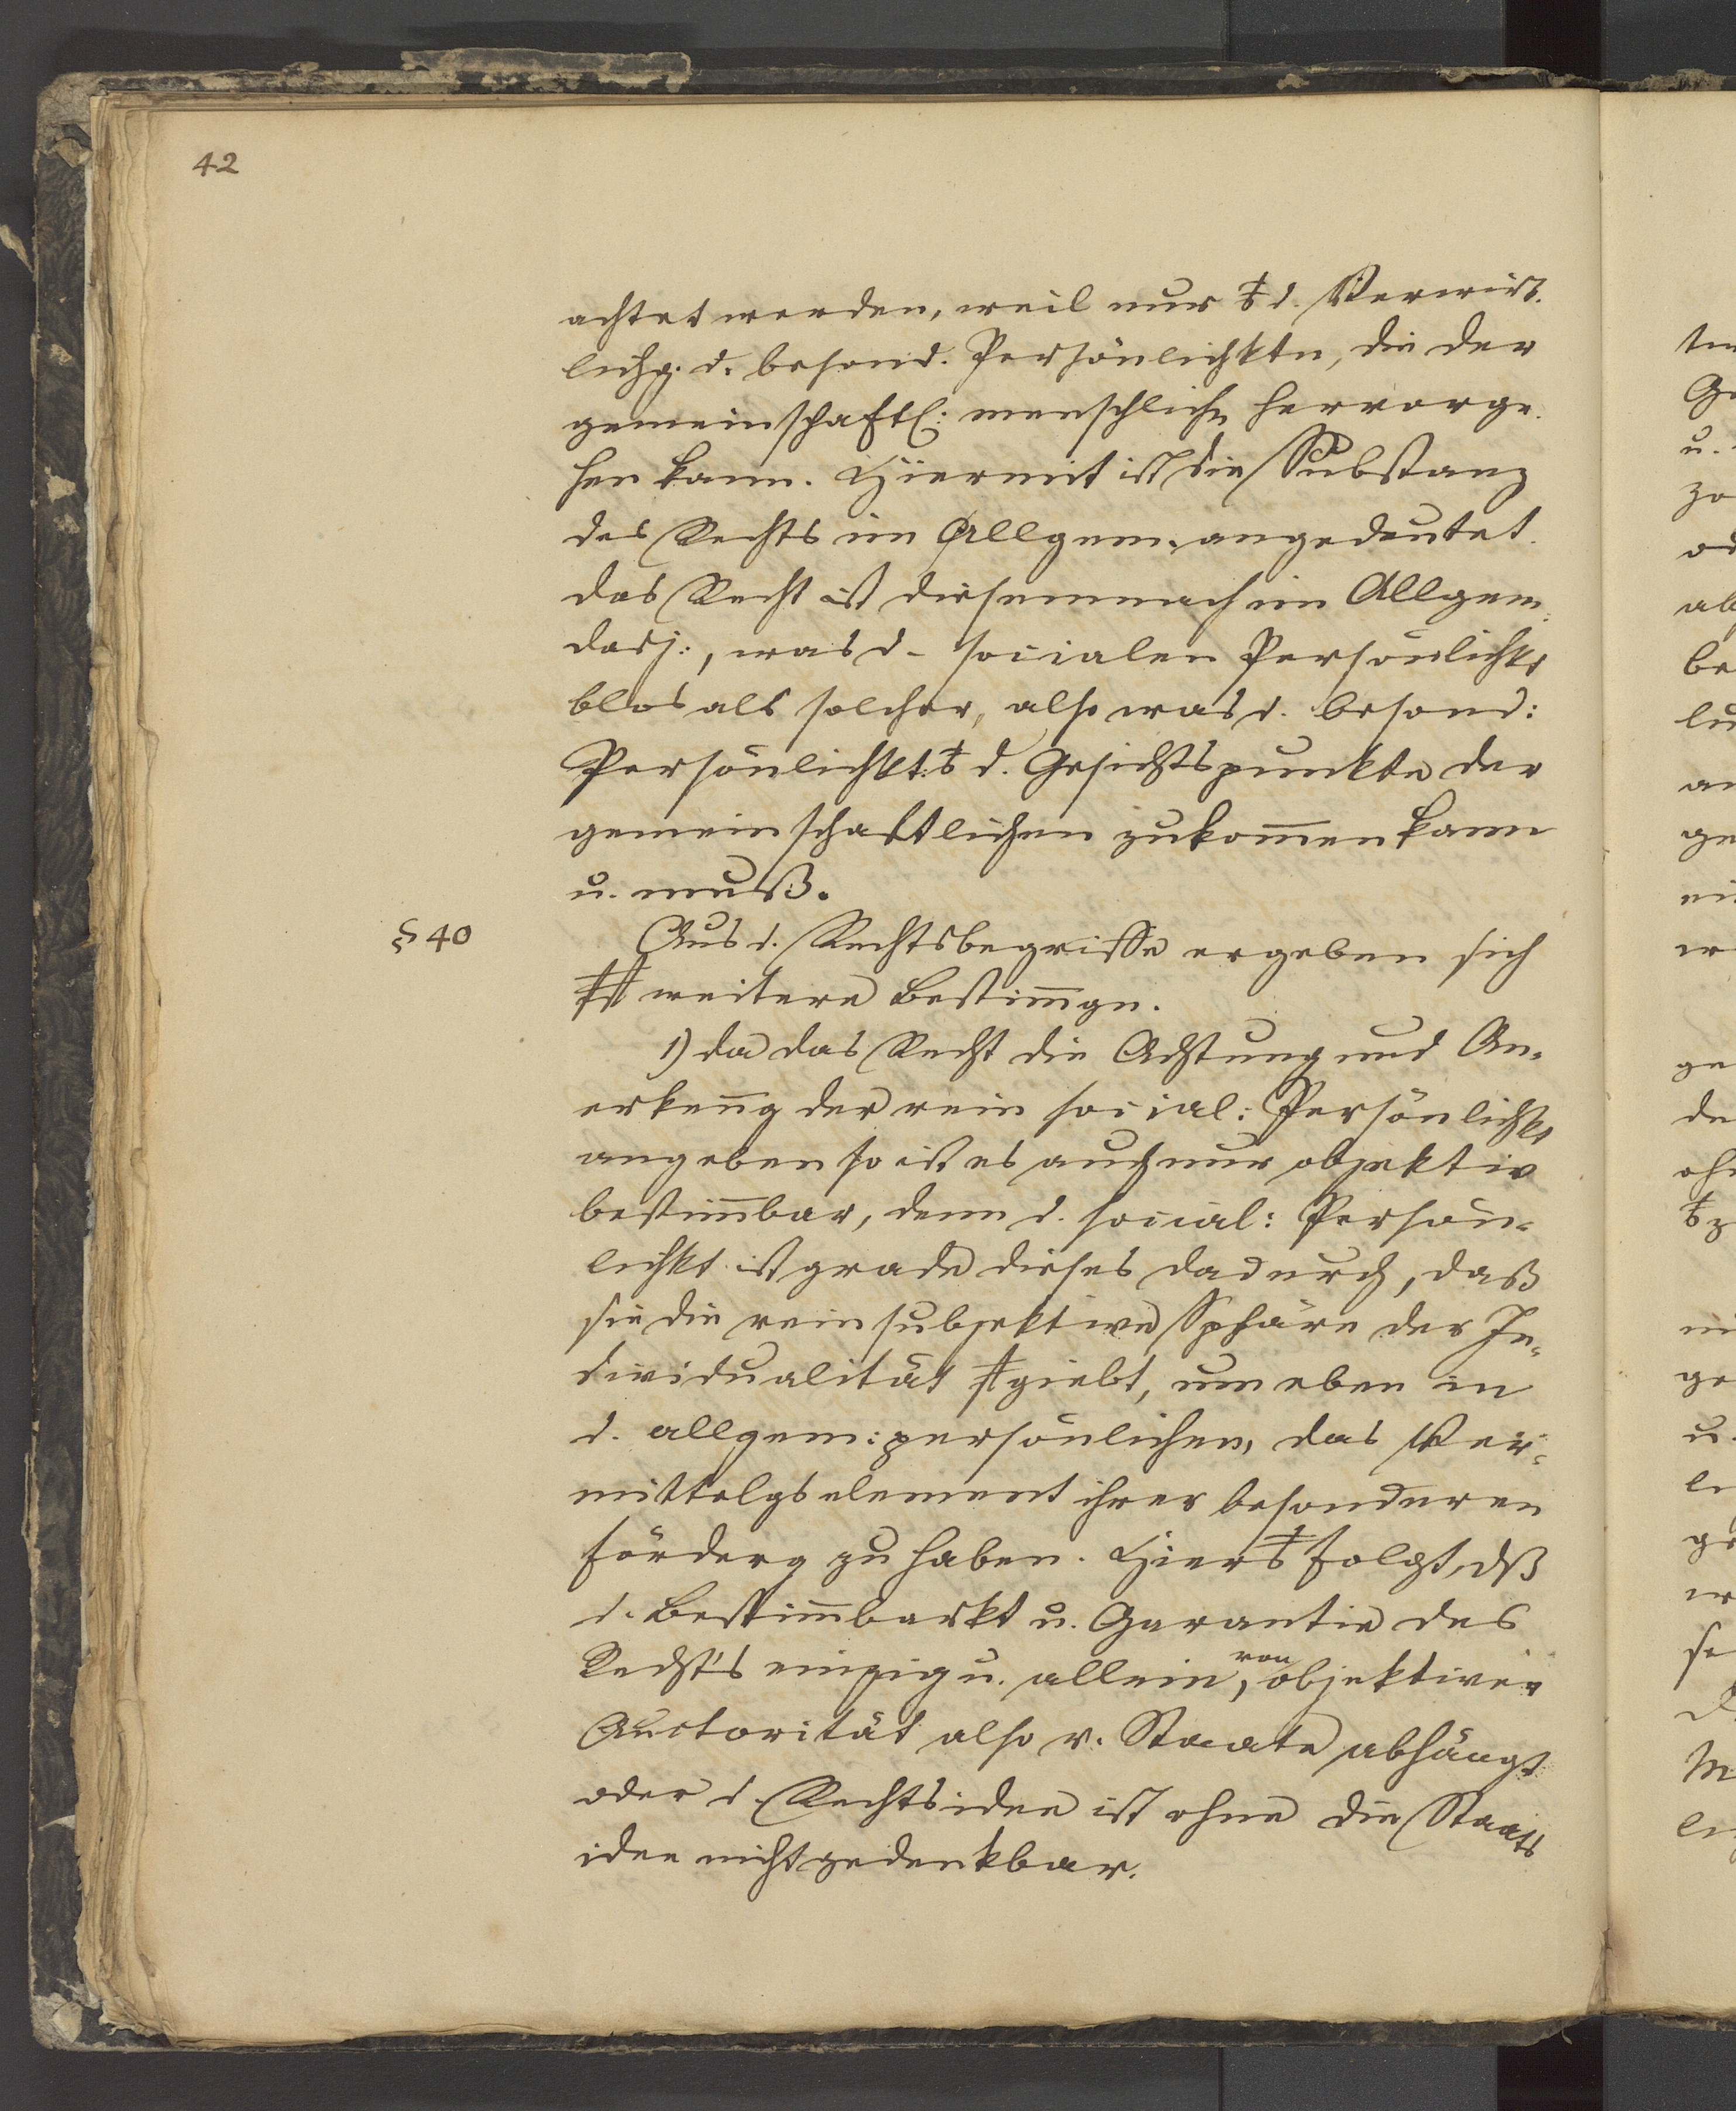 42
achtet werden, weil nur d. Verwirk.
lichg. d. besond. Persönlichktn, die der
gemeinschaftl: menschlichn hervorge.
hen kann. Hiermit ist die Substanz
des Rechts im Allgem. angedeutet.
das Recht ist diesemnach im Allgem.
dasj:, was d. socialen Persönlichkt
blos als solcher, also was d. besond:
Persönlichkt. d. Gesichtspunkte der
gemeinschaftlichen zukom̄en kann
u. muß.
§ 40 Aus d. Rechtsbegriffe ergeben sich
weitere Bestim̄gn.
1) da das Recht die Achtung und An-
erken̄g der rein social: Persönlichkt
angeben so ist es auch nur objektiv
bestim̄bar, denn d. social: Persön-
lichkt ist grade dieses dadurch, daß
sie die rein subjektive Sphäre der In-
dividualität giebt, um eben in
d. allgem: persönlichen, das Ver-
mittelgselement ihrer besonderen
Förderg zu haben. folgt, dß
d. Bestim̄barkt u. Garantie des
Recht's einzig u. allein, von objektiver
Auctorität also v. Staate abhängt
oder d. Rechtsidee ist ohne die Staats
idee nicht gedenkbar.